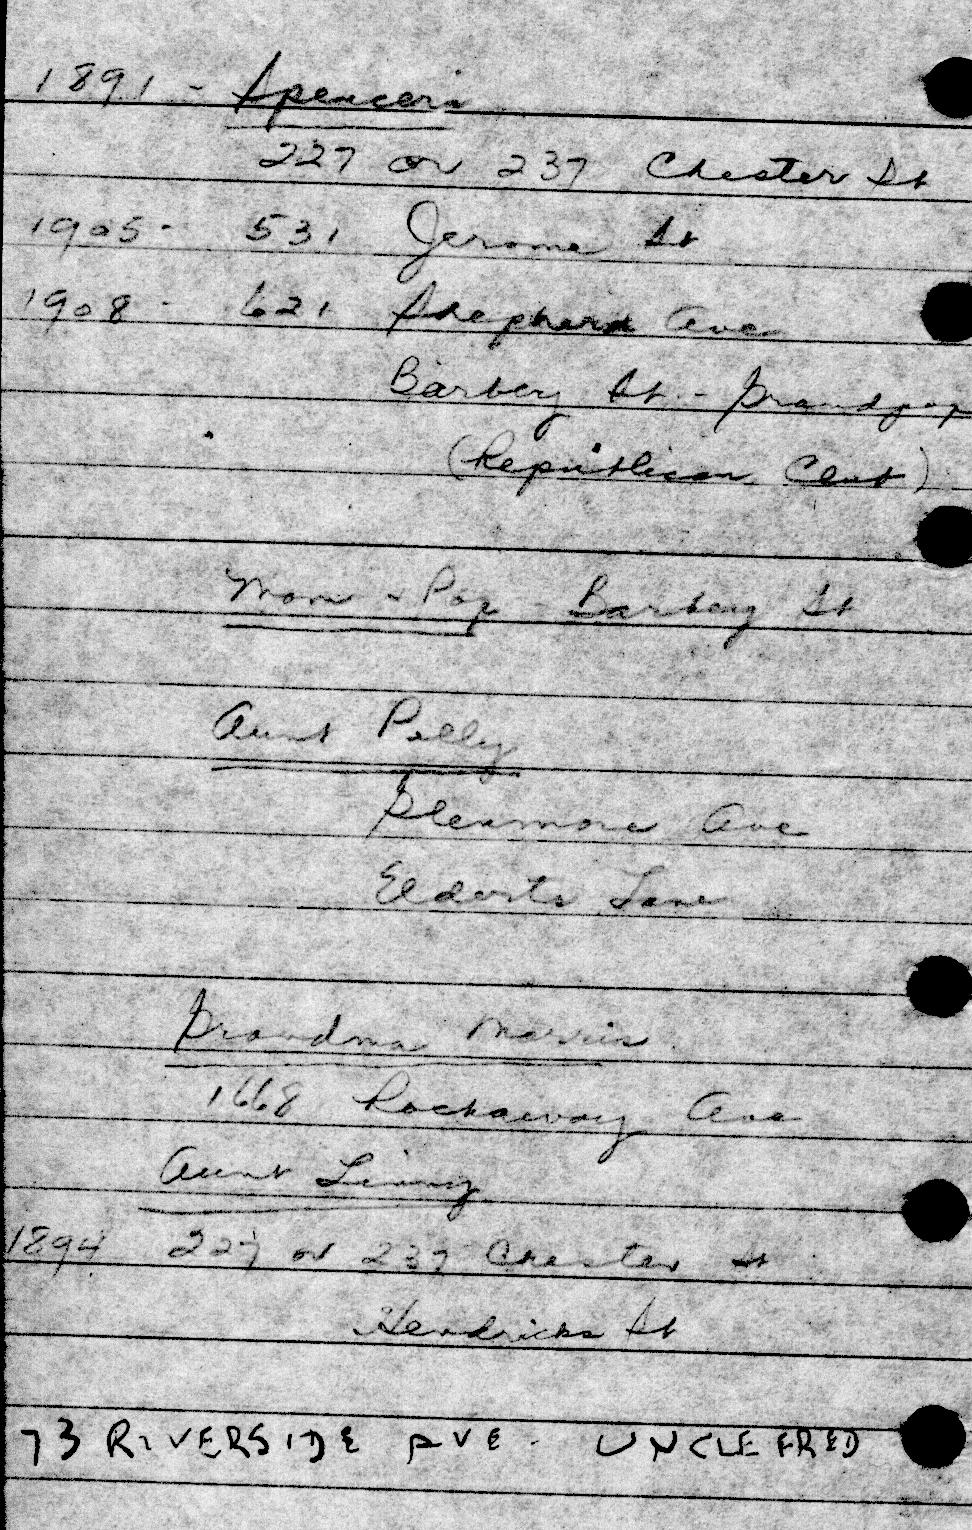 1891 - Spencers
227 or 237 Chester St
1905 - 531 Jerome St
1908 - 621 Shepherd Ave
Barbey St - Grandpop
(Republican Club)
Mom & Pop - Barbey St
Aunt Polly
Glenmore Ave
Elderts Lane
Grandma Marris
1668 Rockaway Ave
Aunt Linny
1894 227 or 237 Chester St
Hendricks St
73 RIVERSIDE AVE - UNCLE FRED